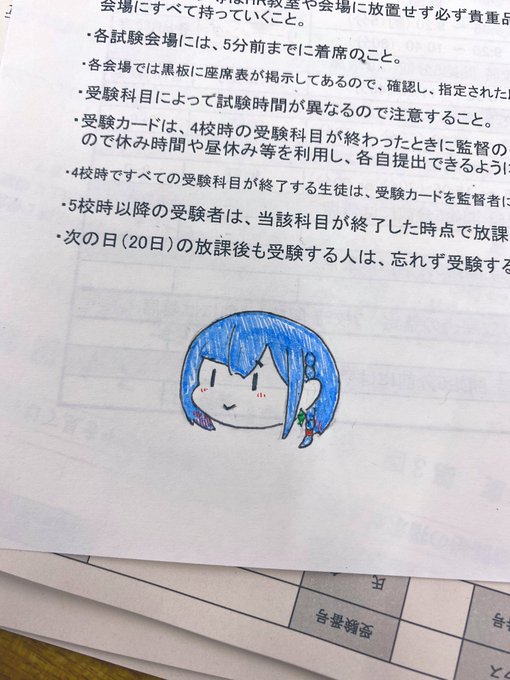 会場にすべて持っていくこと。
・各試験会場には、5分前までに着席のこと。
・各会場では黒板に座席表が掲示してあるので、確認し、指定された
・受験科目によって試験時間が異なるので注意すること。
・受験カードは、4校時の受験科目が終わったときに監督の
ので休み時間や昼休み等を利用し、各自提出できるように
・4校時ですべての受験科目が終了する生徒は、受験カードを監督者に
・5校時以降の受験者は、当該科目が終了した時点で放課
・次の日(20日)の放課後も受験する人は、忘れず受験する
氏
受験番号
番号